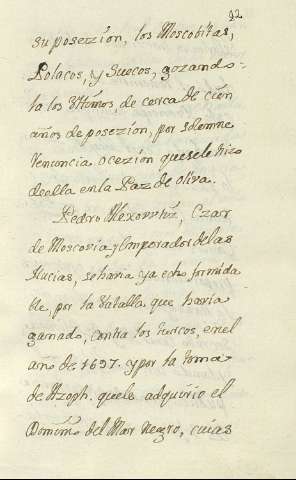 92
su posezion, los Moscobitas,
Polacos, y Suecos, gozando-
la los Vltimos, de cerca de cien
años de posezion, por solemne
renuncia o cezion que se le hizo
de ella en la Paz de Oliva.
Pedro Alexovvitz, Czar
de Moscovia y Emperador de las
Rucias, se havia ya echo formida
ble, por la Vatalla que havia
ganado, contra los turcos, en el
año de 1697. y por la toma
de Azoph. que le adquirio el
Domimo del Mar Negro, cuias